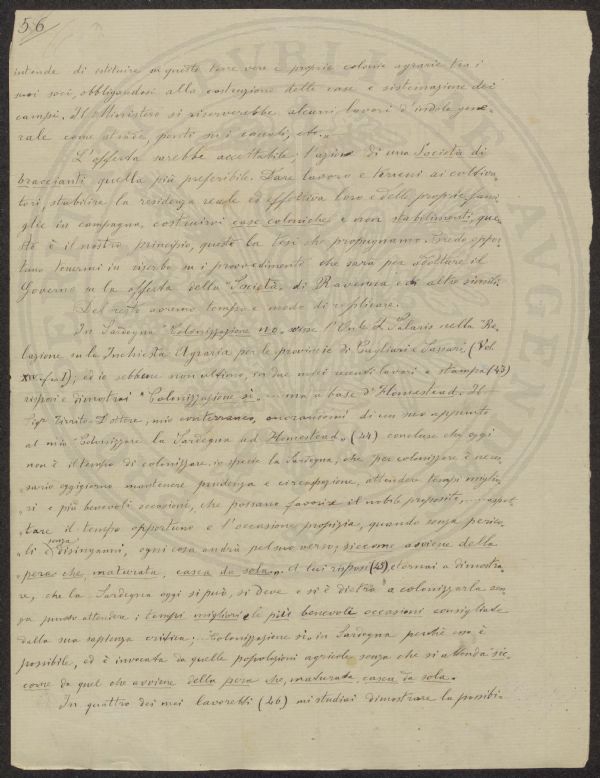 56
intende di istituire in queste terre vere e proprie colonie agrarie tra i
suoi soci, obbligandosi alla costruzione delle case e sistemazione dei
campi. Il Ministero si riserverebbe alcuni lavori d'indole gene-
rale come strade, ponti su i canali, etc.
L'offerta sarebbe accettabile; l'azione di una Società di
braccianti quella più preferibile. Dare lavoro e terreni ai coltiva-
tori, stabilire la residenza reale ed effettiva loro e delle proprie fami-
glie in campagna, costruirvi case coloniche e non stabilimenti, que-
sto è il nostro principio, questa la tesi che propugnamo. Credo oppor-
tuno tenermi in riserbo su i provvedimenti che sarà per adottare il
Governo su la offerta della Società di Ravenna e di altre simili.
Del resto avremo tempo e modo di replicare.
In Sardegna "Colonizzazione no" scrisse l'On.le F. Salaris nella "Re-
lazione su la Inchiesta Agraria per le provincie di Cagliari e Sassari (Vol.
XIV f. I), ed io sebbene non ultimo, in due miei recenti lavori a stampa (43)
risposi e dimostrai "Colonizzazione sì" ma a base d'Homestead. Il
mio conterraneo, onorandomi di un suo appunto
al mio "Colonizzare la Sardegna ad Homestead" (44) concluse che oggi
non è il tempo di colonizzare, in specie la Sardegna, che per colonizzare è neces-
"sario oggigiorno mantenere prudenza e circospezione, attendere tempi miglio-
"ri e più benevoli occasioni, che possano favorire il nobile proposito, .... aspet-
"tare il tempo opportuno e l'occasione propizia, quando senza perico-
"li senza disinganni, ogni cosa andrà pel suo verso, siccome avviene della
"pera che, maturata, casca da sola". A lui risposi (45), e tornai a dimostra-
re, che la Sardegna oggi si può, si deve e si è dietro a colonizzarla sen-
za punto attendere i tempi migliori e le più benevoli occasioni consigliate
dalla sua sapienza critica; "Colonizzazione sì" in Sardegna perché essa è
possibile, ed è invocata da quelle popolazioni agricole senza che si attenda sic-
come da quel che avviene della pera che, maturata, casca da sola.
In quattro dei miei lavoretti (46) mi studiai dimostrare la possibi-